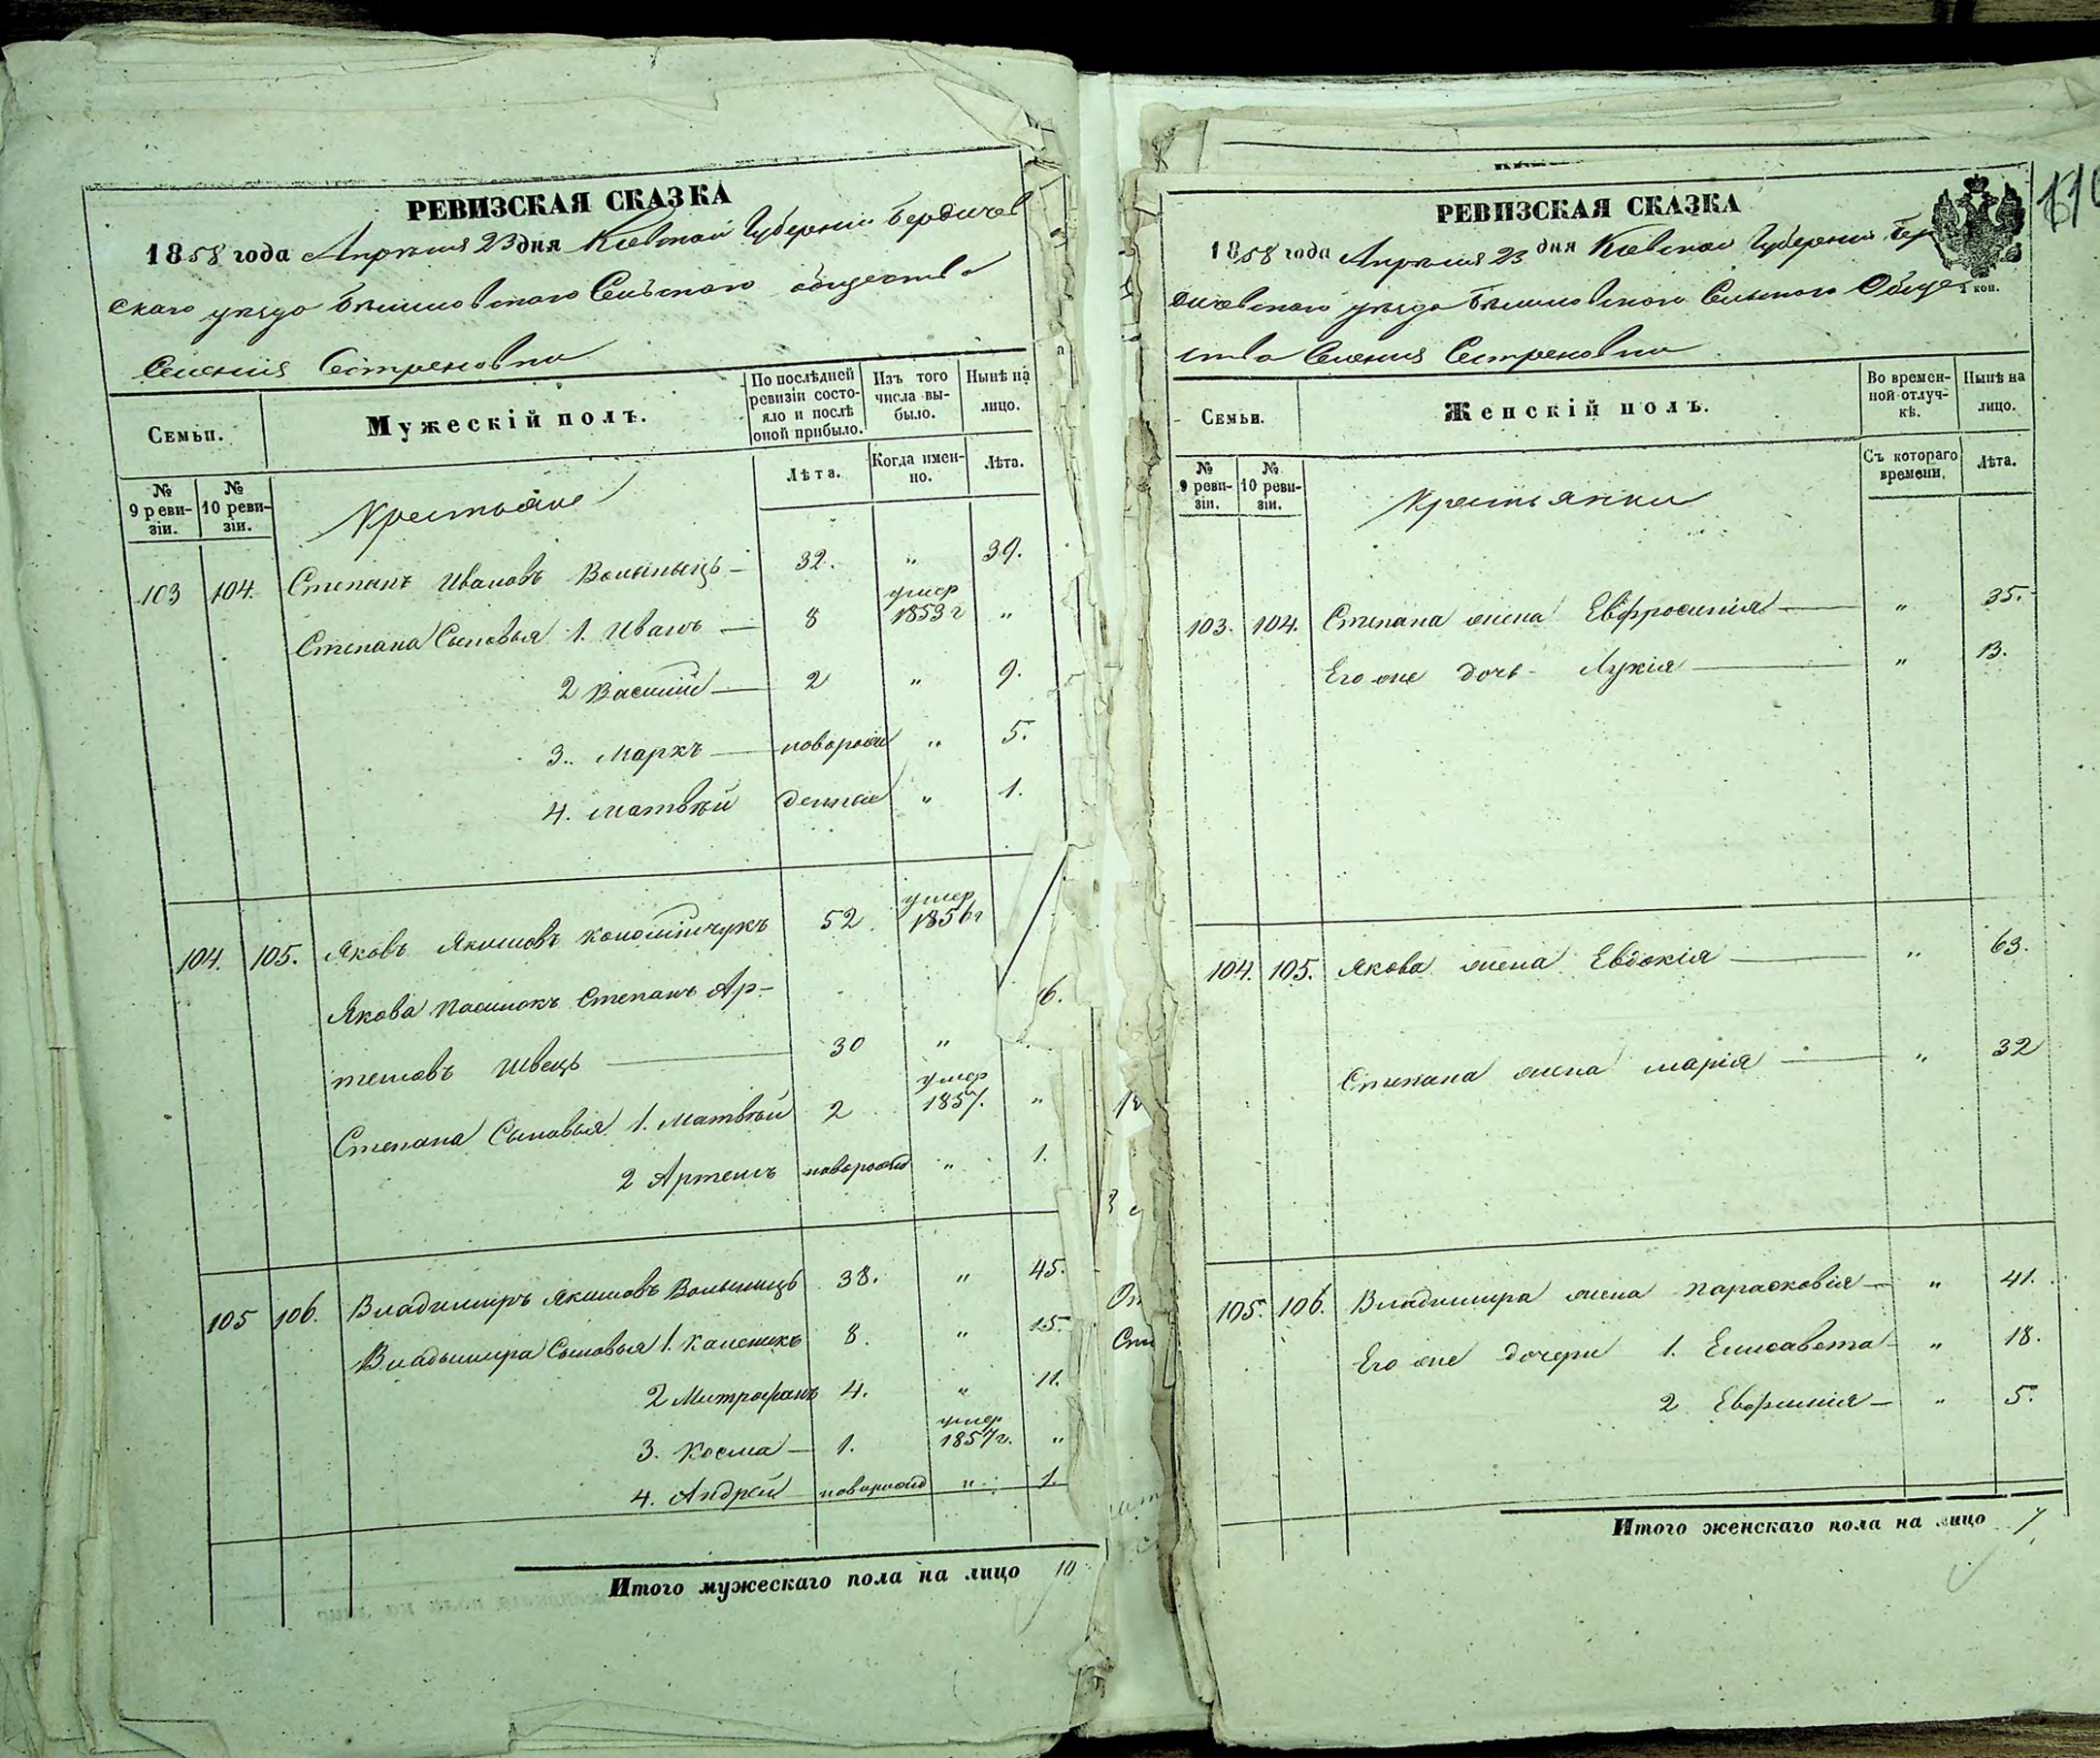 РЕВИЗСКАЯ СКАЗКА
1858 года Апрѣля 23 дня Кіевской Губерніи Бердичев
скаго уѣзда Бѣлиловскаго Сельскаго общества
Селенія Сестреновки
Семьи.
Мужескій полъ.
По послѣдней ревизіи состо-
яло и послѣ оной прибыло.
Изъ того числа вы-
было.
Нынѣ на лицо.
№ 9 реви-
зіи.
№ 10 реви-
зіи.
Крестьяне
Лѣта.
Когда имен-
но.
Лѣта.
103 104. Степанъ Ивановъ Волынецъ — 32. " 39.
Степана Сыновья 1. Иванъ — 8 умер 1853 г "
2 Василій — 2 " 9.
3. Маркъ — новорож " 5.
4. Матвѣй денные " 1.
104. 105. Яковъ Якимовъ 52. умер 1856 г
Якова Пасинокъ Степанъ Ар-
темовъ Швецъ — 30 "
6.
Степана Сыновья 1. Матвѣй 2 умер 1857. "
2 Артемъ новорожд " 1.
105 106. Владимиръ Якимовъ Волынецъ 38. " 45.
Владимира Сыновья 1. Каленикъ 8. " 15.
2 Митрофанъ 4. " 11.
3. Косма — 1. умер 1857 г. "
4. Андрей новорожд " 1.
Итого мужескаго пола на лицо 10
РЕВИЗСКАЯ СКАЗКА
1858 года Апрѣля 23 дня Кіевской Губерніи Бер
дичевскаго уѣзда Бѣлиловскаго Сельскаго Обще
коп.
ства Селенія Сестреновки
Семьи.
Женскій полъ.
Во времен-
ной отлуч-
кѣ.
Нынѣ на лицо.
№ 9 реви-
зіи.
№ 10 реви-
зіи.
Крестьянки
Съ котораго времени.
Лѣта.
103. 104. Степана жена Евфросинія — " 35.
Его же дочь - Лукія — " 13.
104. 105. Якова жена Евдокія — " 63.
Степана жена Марія — " 32
105. 106. Владимира жена Парасковія — " 41.
Его же дочери 1. Елисавета — " 18.
2 Евфимія — " 5.
Итого женскаго пола на лицо 7